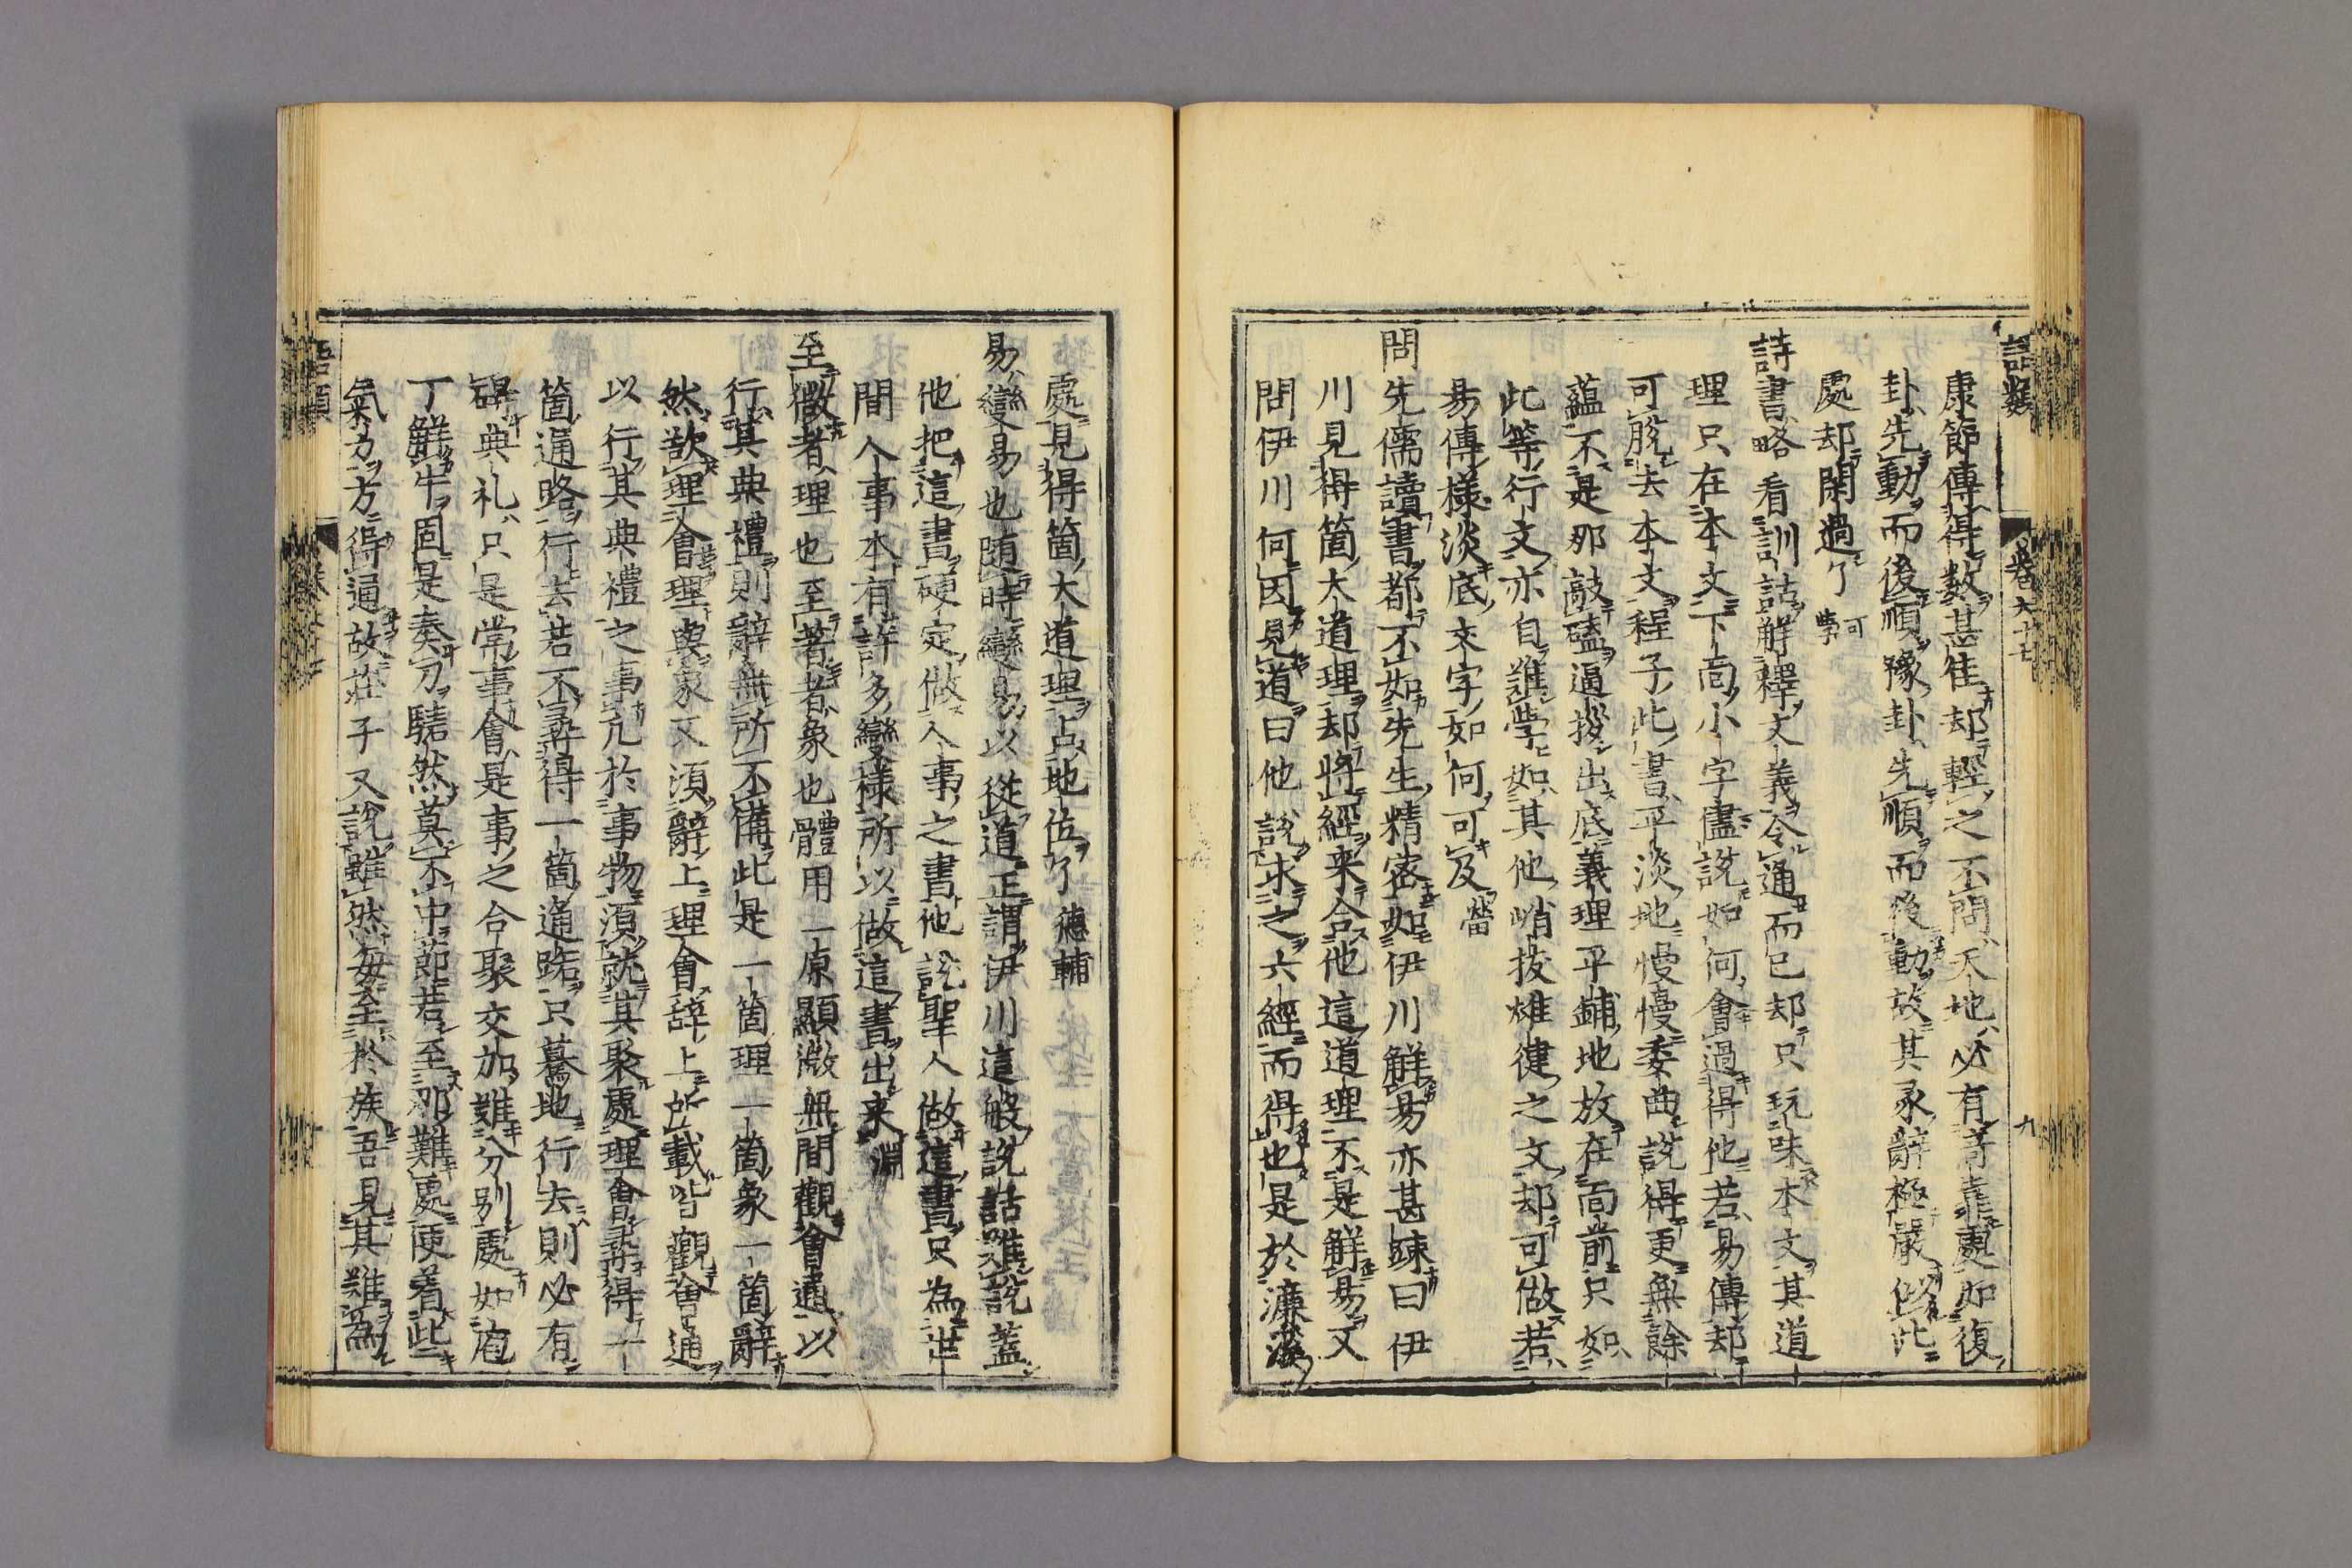 語類 卷六十七 九
康節傳得數甚佳却輕之不問天地必有倚靠處如復
卦先動而後順豫卦先順而後動故其彖辭極嚴似此
處却閑過了 可學
詩書略看訓詁解釋文義令通而已却只玩味本文其道
理只在本文下面小字儘說如何會過得他若易傳却
可脫去本文程子此書平淡地慢慢委曲說得更無餘
蘊不是那敲磕逼拶出底義理平鋪地放在面前只如
此等行文亦自難學如其他峭拔雄健之文却可做若
易傳樣淡底文字如何可及 㽦
問先儒讀書都不如先生精密如伊川解易亦甚踈曰伊
川見得箇大道理却將經来合他這道理不是解易又
問伊川何因見道曰他說求之六經而得也是於濂溪
處見得箇大道理占地位了 德輔
易變易也随時變易以從道正謂伊川這般說話難說蓋
他把這書硬定做人事之書他說聖人做這書只為世
間人事本有許多變樣所以做這書出来 淵
至微者理也至著者象也體用一原顯微無間觀會通以
行其典禮則辭無所不備此是一箇理一箇象一箇辭
然欲理會理與象又須辭上理會辞上所載皆觀會通
以行其典禮之事凢於事物須就其聚處理會尋得一
箇通路行去若不尋得一箇通路只驀地行去則必有
碍典礼只是常事會是事之合聚交加難分別處如庖
丁解牛固是奏刀騞然莫不中節若至那難處便着些
氣力方得通故莊子又說雖然每至於族吾見其難為
語類